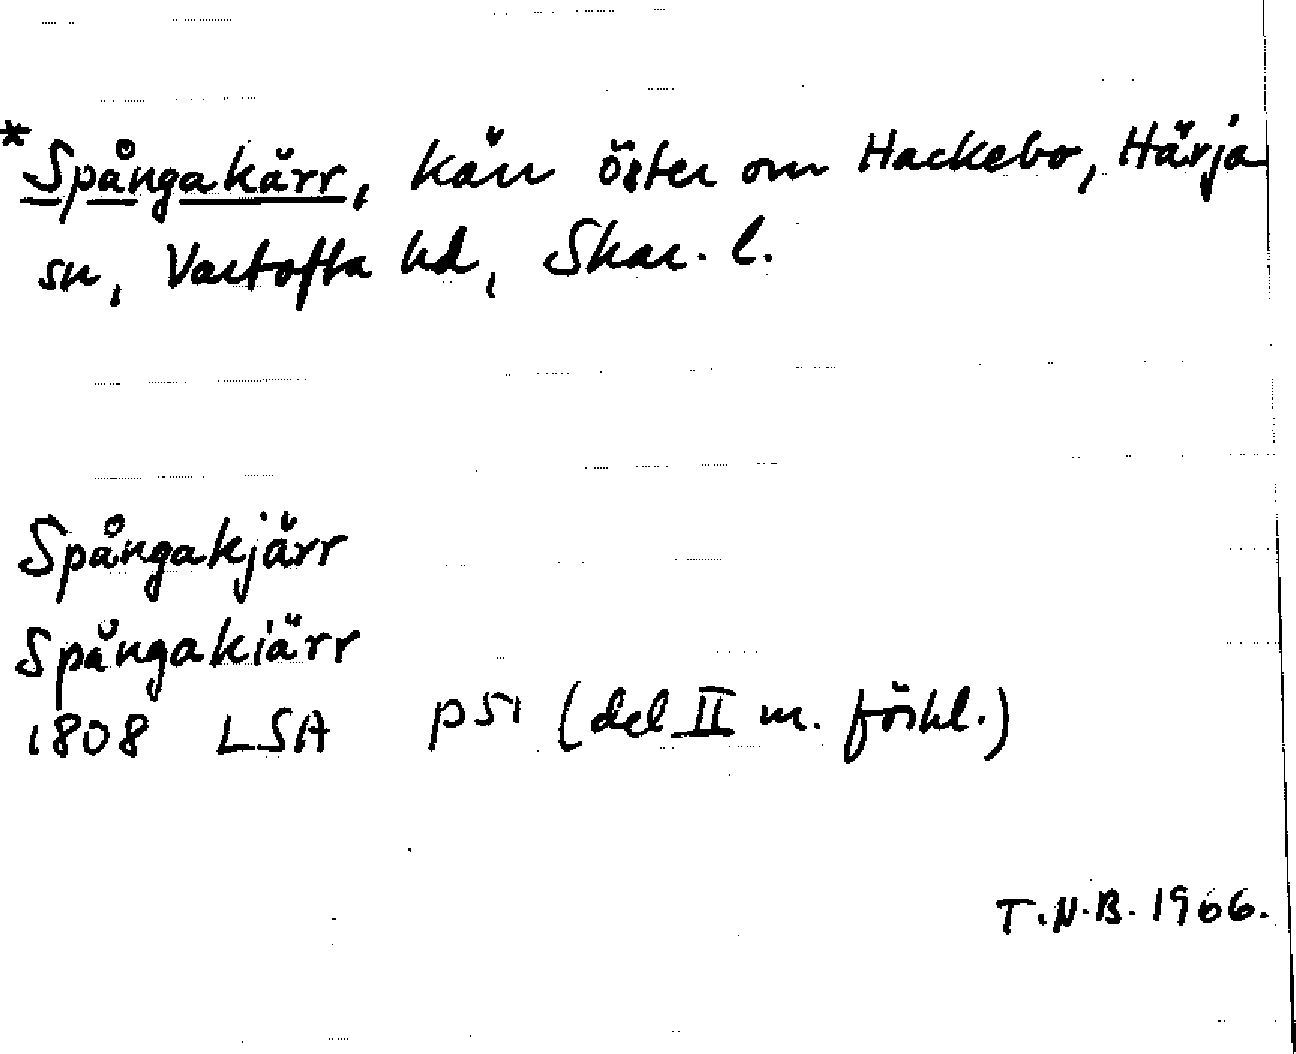 *Spångakärr, kärr öster om Hackebo, Härja
sn, Vartofta hd, Skar. l.
Spångakjärr
Spångakiärr
1808 LSA p51 (del II m. förkl.)
T.N.B. 1966.